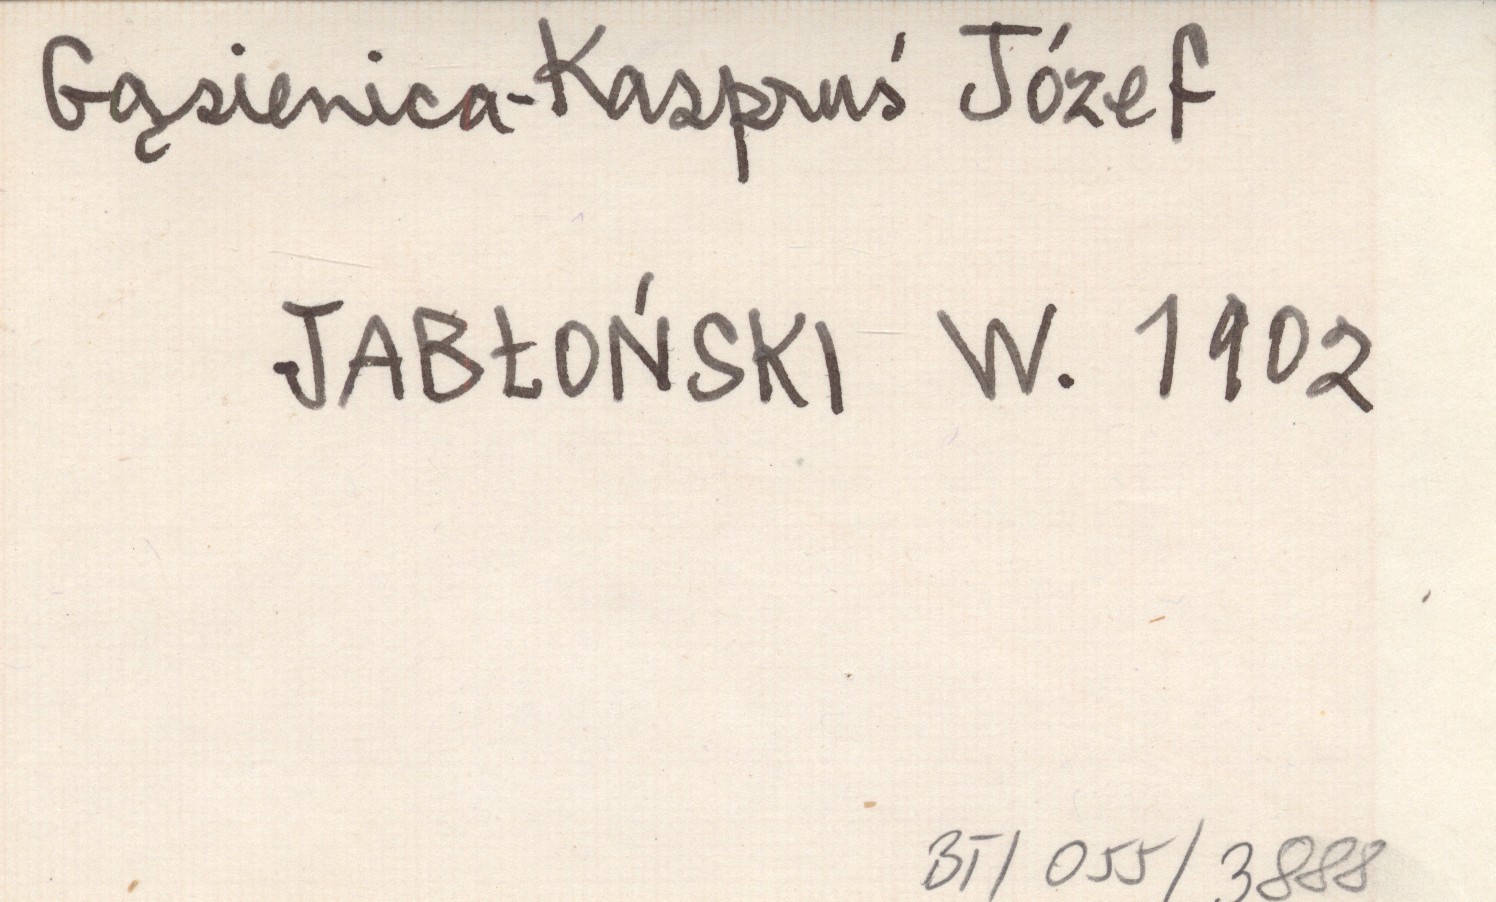 Gąsienica-Kaspruś Józef
JABŁOŃSKI W. 1902
BT/055/3888